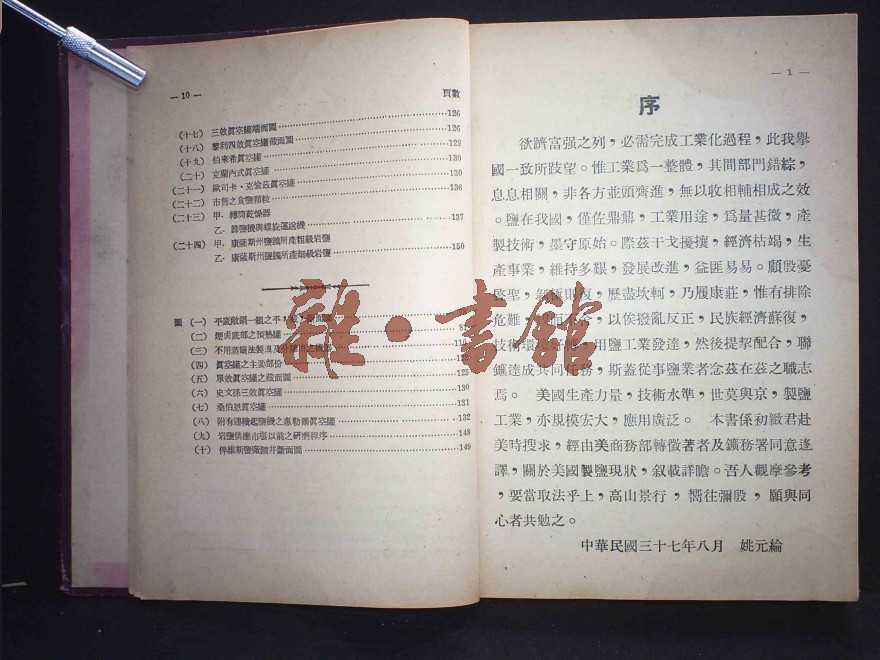 — 10 —
頁數
(十七) 三效眞空罐端面圖 126
(十八) 黎利四效眞空罐截面圖 126
(十九) 伯來希眞空罐 129
(二十) 克蘭內式眞空罐 130
(二十一) 歐司卡·克愉茲眞空罐 130
(二十二) 市售之食鹽顆粒 136
(二十三) 甲·轉筒乾燥器
乙·篩鹽機與螺旋運送機 137
(二十四) 甲·康薩斯州鹽鑛所產粗級岩鹽
乙·康薩斯州鹽鑛所產細級岩鹽 150
圖 (一) 平底敞鍋一組之平
(二) 煙囪底部之預熱罐
(三) 不用蒸罐法製
(四) 眞空罐之主要部份
(五) 單效眞空罐之截面圖 125
(六) 史文孫三效眞空罐 130
(七) 桑伯恩眞空罐 131
(八) 附有連續起鹽機之惠勒爾眞空罐 132
(九) 岩鹽供應市塲以前之研磨程序 148
(十) 伸維斯鹽廠鑛井斷面圖 149
— 1 —
序
欲躋富强之列，必需完成工業化過程，此我舉
國一致所跂望。惟工業爲一整體，其間部門錯綜，
息息相關，非各方並頭齊進，無以收相輔相成之效
。鹽在我國，僅佐鼎鼐，工業用途，爲量甚微，產
製技術，墨守原始。際茲干戈擾攘，經濟枯竭，生
產事業，維持多艱，發展改進，益匪易易。顧殷憂
啓聖，剝極則復，歷盡坎軻，乃履康莊，惟有排除
危難，以俟撥亂反正，民族經濟蘇復，
技術環境，用鹽工業發達，然後提挈配合，聯
鑣達成共同任務，斯蓋從事鹽業者念茲在茲之職志
焉。　美國生產力量，技術水準，世莫與京，製鹽
工業，亦規模宏大，應用廣泛。　本書係初緻君赴
美時搜求，經由美商務部轉徵著者及鑛務署同意逐
譯，關於美國製鹽現狀，叙載詳瞻。吾人觀摩參考
，要當取法乎上，高山景行，嚮往彌殷，願與同
心者共勉之。
中華民國三十七年八月　姚元綸
雜·書館